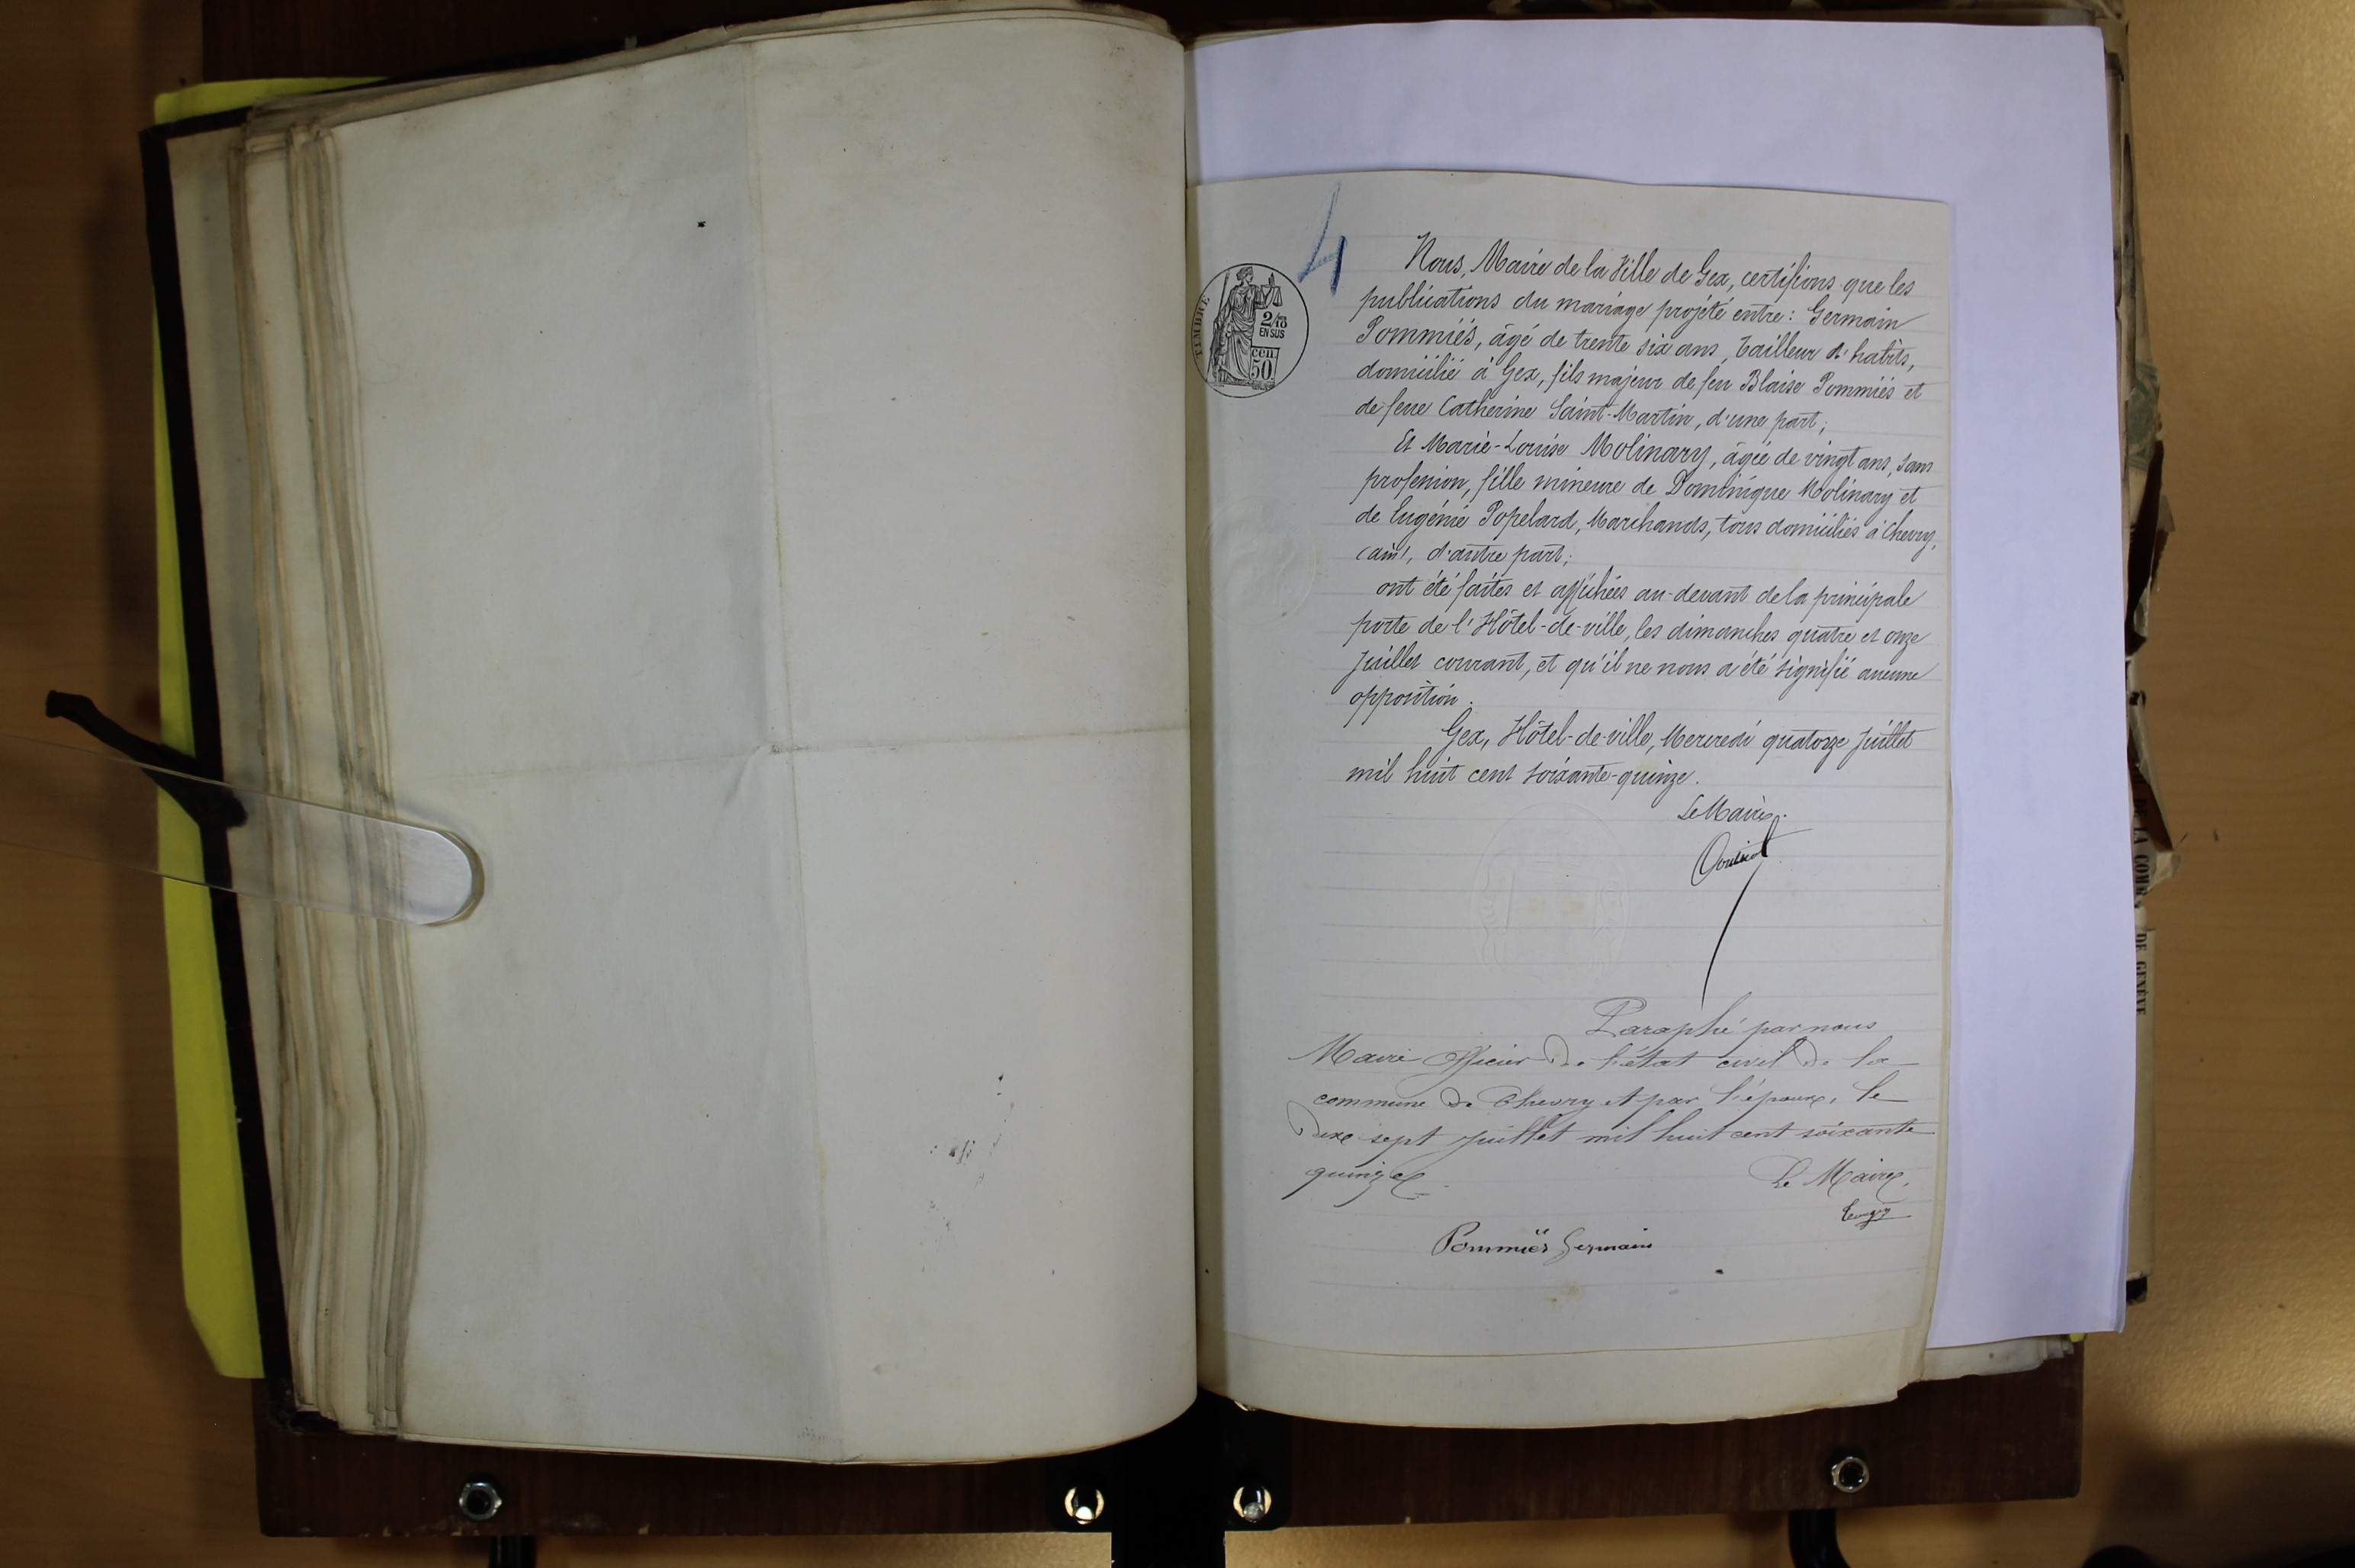 4
TIMBRE
2/10
EN SUS
50 cen
Nous, Maire de la Ville de Gex, certifions que les
publications du mariage projété entre : Germain
Pommiés, âgé de trente six ans, tailleur d'habits,
domicilié à Gex, fils majeur de feu Blaise Pommiés et
de feue Catherine Saint-Martin, d'une part ;
Et Marie-Louise Molinary, âgée de vingt ans, sans
profession, fille mineure de Dominique Molinary et
de Eugénie Popelard, Marchands, tous domiciliés à Chevry,
(ain), d'autre part ;
ont été faites et affichées au-devant de la principale
porte de l'Hôtel-de-ville, les dimanches quatre et onze
Juillet courant, et qu'il ne nous a été signifié aucune
opposition.
Gex, Hôtel-de-ville, Mercredi quatorze Juillet
mil huit cent soixante-quinze.
Le Maire.
Paraphé par nous
Maire Officier de l'état civil de la
commune de Chevry et par l'époux, le
dix sept juillet mil huit cent soixante
quinze
Le Maire,
Pommiës Germain
DE LA COMM
DE GENÈVE